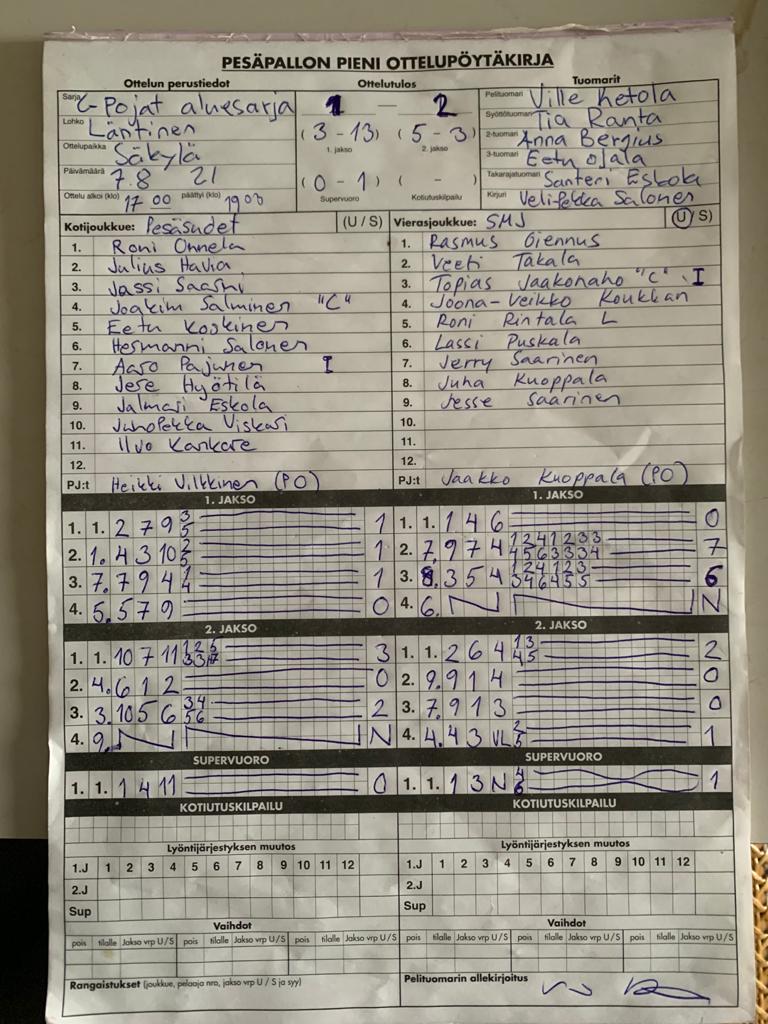 PESÄPALLON PIENI OTTELUPÖYTÄKIRJA
Ottelun perustiedot
Sarja C-Pojat aluesarja
Lohko Läntinen
Ottelupaikka Säkylä
Päivämäärä 7.8 21
Ottelu alkoi (klo) 17 00 päättyi (klo) 19 03
Ottelutulos
1 — 2
(3 - 13) (5 - 3)
1. jakso 2. jakso
(0 - 1) ( - )
Supervuoro Kotiutuskilpailu
Tuomarit
Pelituomari Ville Ketola
Syöttötuomari Tia Ranta
2-tuomari Anna Bergius
3-tuomari Eetu Ojala
Takarajatuomari Santeri Eskola
Kirjuri Veli-Pekka Salonen
Kotijoukkue: Pesäsudet (U / S)
1. Roni Onnela
2. Julius Havia
3. Jassi Saarni
4. Joakim Salminen "C"
5. Eetu Koskinen
6. Hermanni Salonen
7. Aaro Pajunen I
8. Jere Hyötilä
9. Jalmari Eskola
10. Juhopekka Viskari
11. Ilvo Kankare
12.
PJ:t Heikki Vilkkinen (PO)
Vierasjoukkue: SMJ (U / S)
1. Rasmus Giennus
2. Veeti Takala
3. Topias Jaakonaho "C" I
4. Joona-Veikko Koukkari
5. Roni Rintala L
6. Lassi Puskala
7. Jerry Saarinen
8. Juha Kuoppala
9. Jesse Saarinen
10.
11.
12.
PJ:t Jaakko Kuoppala (PO)
1. JAKSO
1. 1. 2 7 9 3 5 1
2. 1. 4 3 10 2 5 1
3. 7. 7 9 4 1 4 1
4. 5. 5 7 9 0
1. JAKSO
1. 1. 1 4 6 0
2. 7. 9 7 4 1 2 4 1 2 3 3 4 5 6 3 3 3 4 7
3. 8. 3 5 4 1 2 4 1 2 3 3 4 6 4 5 5 6
4. 6. N N
2. JAKSO
1. 1. 10 7 11 1 2 5 3 3 7 3
2. 4. 6 1 2 0
3. 3. 10 5 6 3 4 5 6 2
4. 9. N N
2. JAKSO
1. 1. 2 6 4 1 3 4 5 2
2. 9. 9 1 4 0
3. 7. 9 1 3 0
4. 4. 4 3 VL 2 5 1
SUPERVUORO
1. 1. 1 4 11 0
SUPERVUORO
1. 1. 1 3 N 4 6 1
KOTIUTUSKILPAILU
KOTIUTUSKILPAILU
Lyöntijärjestyksen muutos
1.J 1 2 3 4 5 6 7 8 9 10 11 12
2.J
Sup
Lyöntijärjestyksen muutos
1.J 1 2 3 4 5 6 7 8 9 10 11 12
2.J
Sup
Vaihdot
pois tilalle Jakso vrp U/S pois tilalle Jakso vrp U/S pois tilalle Jakso vrp U/S
Vaihdot
pois tilalle Jakso vrp U/S pois tilalle Jakso vrp U/S pois tilalle Jakso vrp U/S
Rangaistukset (joukkue, pelaaja nro, jakso vrp U / S ja syy)
Pelituomarin allekirjoitus